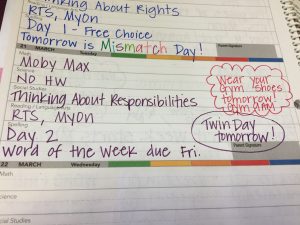 Thinking About Rights
RTS, Myon
Day 1 - Free Choice
Tomorrow is Mismatch Day!
Parent Signature
21 MARCH Tuesday
Math
Moby Max
Science
No HW
Social Studies
Thinking About Responsibilities
RTS, Myon
Spelling
Day 2
Word of the Week due Fri.
Wear your
gym shoes
tomorrow!
Twin Day
tomorrow!
Parent Signature
22 MARCH Wednesday
Math
Science
Social Studies